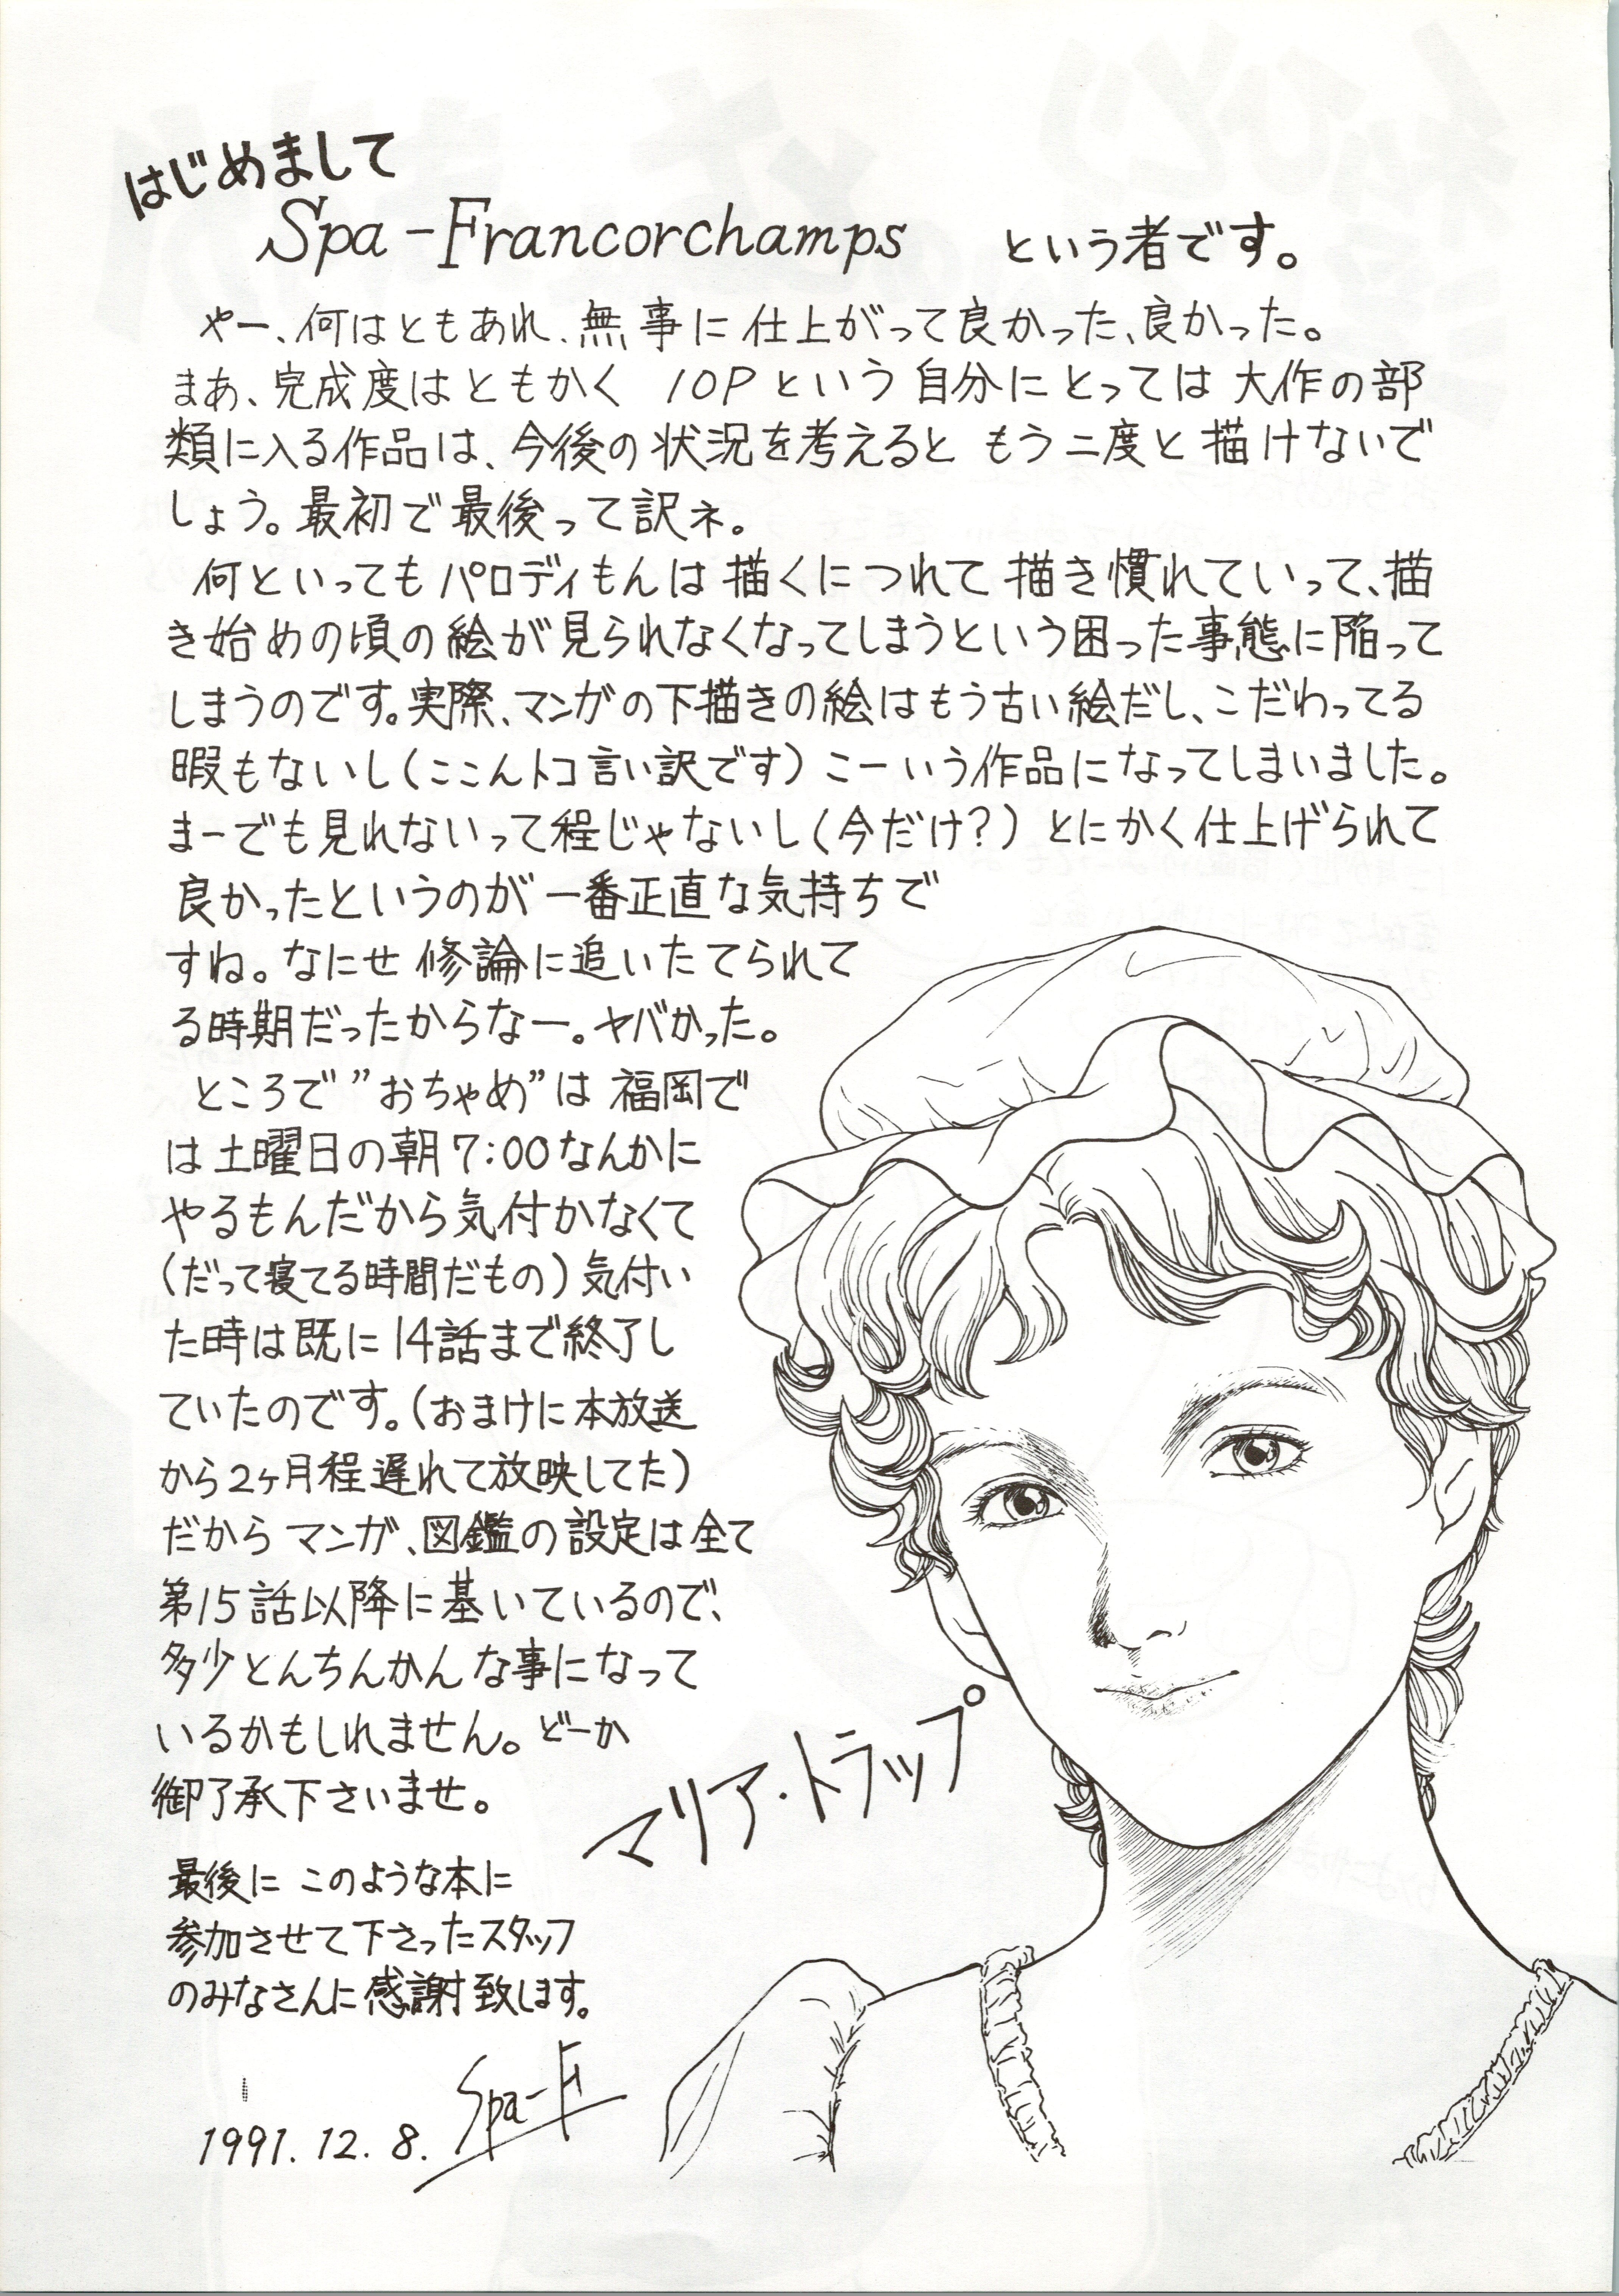 はじめまして
Spa-Francorchamps という者です。
やー、何はともあれ、無事に仕上がって良かった、良かった。
まあ、完成度はともかく 10Pという自分にとっては大作の部
類に入る作品は、今後の状況を考えると もう二度と描けないで
しょう。最初で最後って訳ネ。
何といってもパロディもんは描くにつれて描き慣れていって、描
き始めの頃の絵が見られなくなってしまうという困った事態に陥って
しまうのです。実際、マンガの下描きの絵はもう古い絵だし、こだわってる
暇もないし(ここんトコ言い訳です)こーいう作品になってしまいました。
まーでも見れないって程じゃないし(今だけ?)とにかく仕上げられて
良かったというのが一番正直な気持ちで
すね。なにせ修論に追いたてられて
る時期だったからなー。ヤバかった。
ところで"おちゃめ"は福岡で
は土曜日の朝7:00なんかに
やるもんだから気付かなくて
(だって寝てる時間だもの)気付い
た時は既に14話まで終了し
ていたのです。(おまけに本放送
から2ヶ月程遅れて放映してた)
だからマンガ、図鑑の設定は全て
第15話以降に基いているので、
多少とんちんかんな事になって
いるかもしれません。どーか
御了承下さいませ。
マリア・トラップ
最後に このような本に
参加させて下さったスタッフ
のみなさんに感謝致します。
1991.12.8. Spa-F